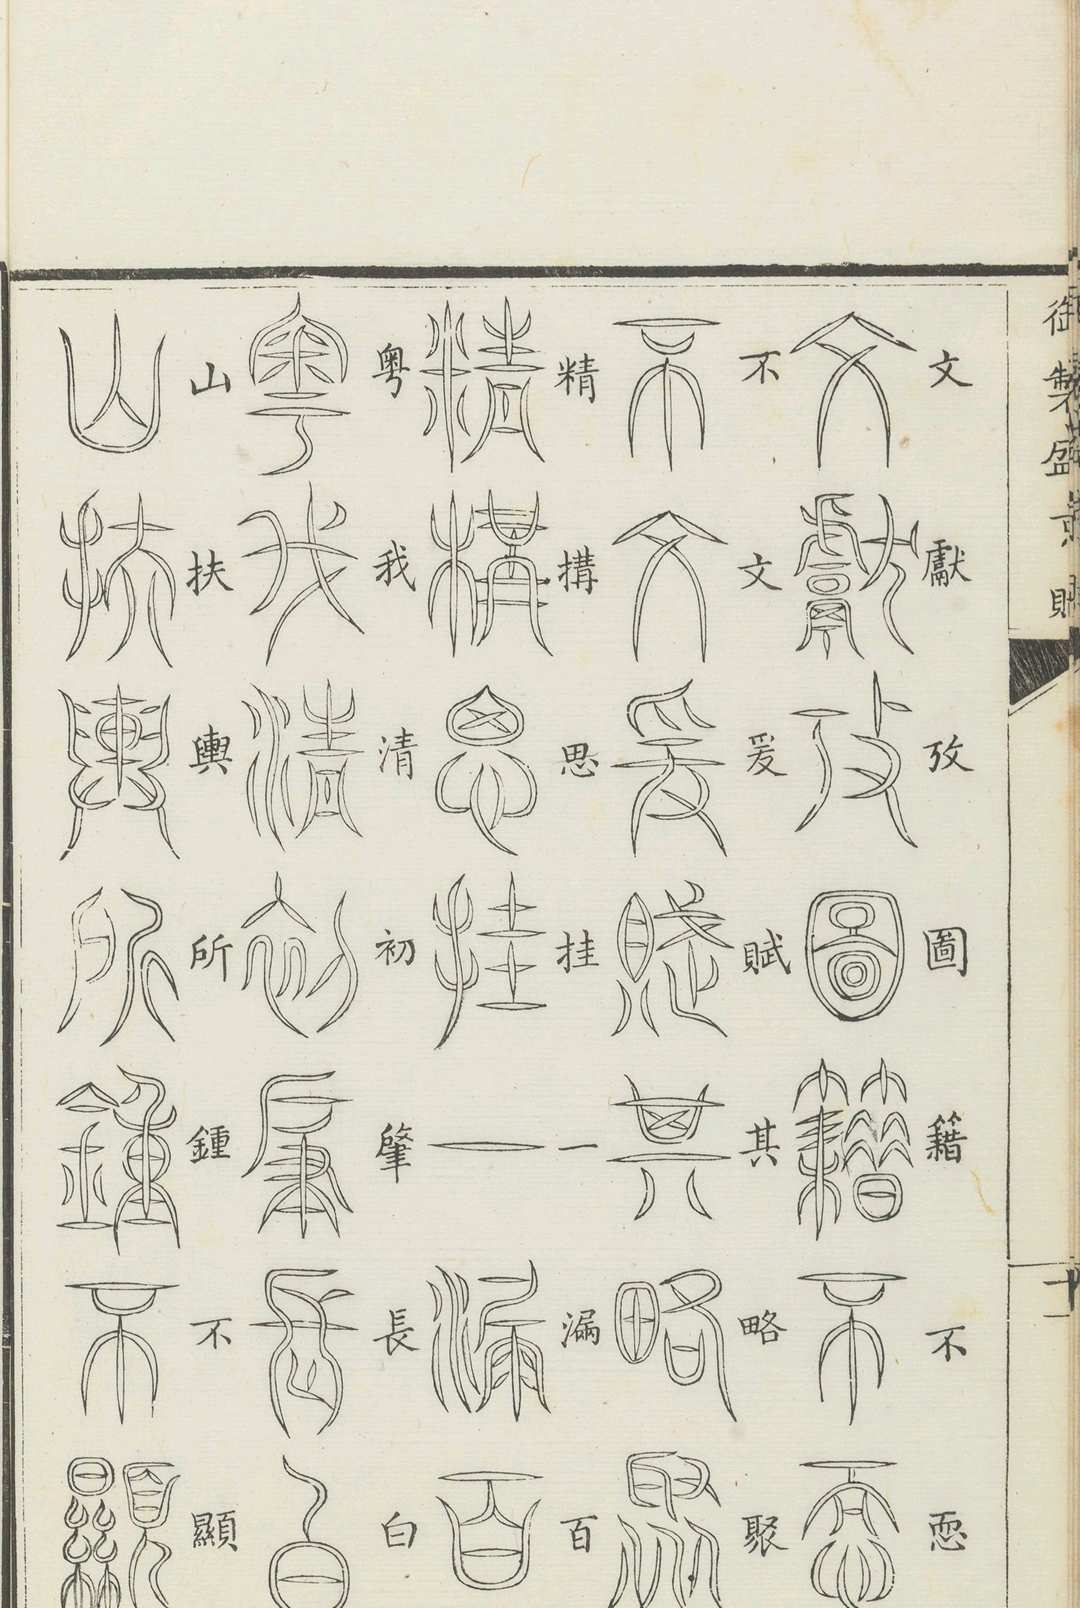 御製盛京賦
文獻攷圖籍不恧
不文爰賦其略聚
精構思挂一漏百
粵我清初肇長白
山扶輿所鍾不顯